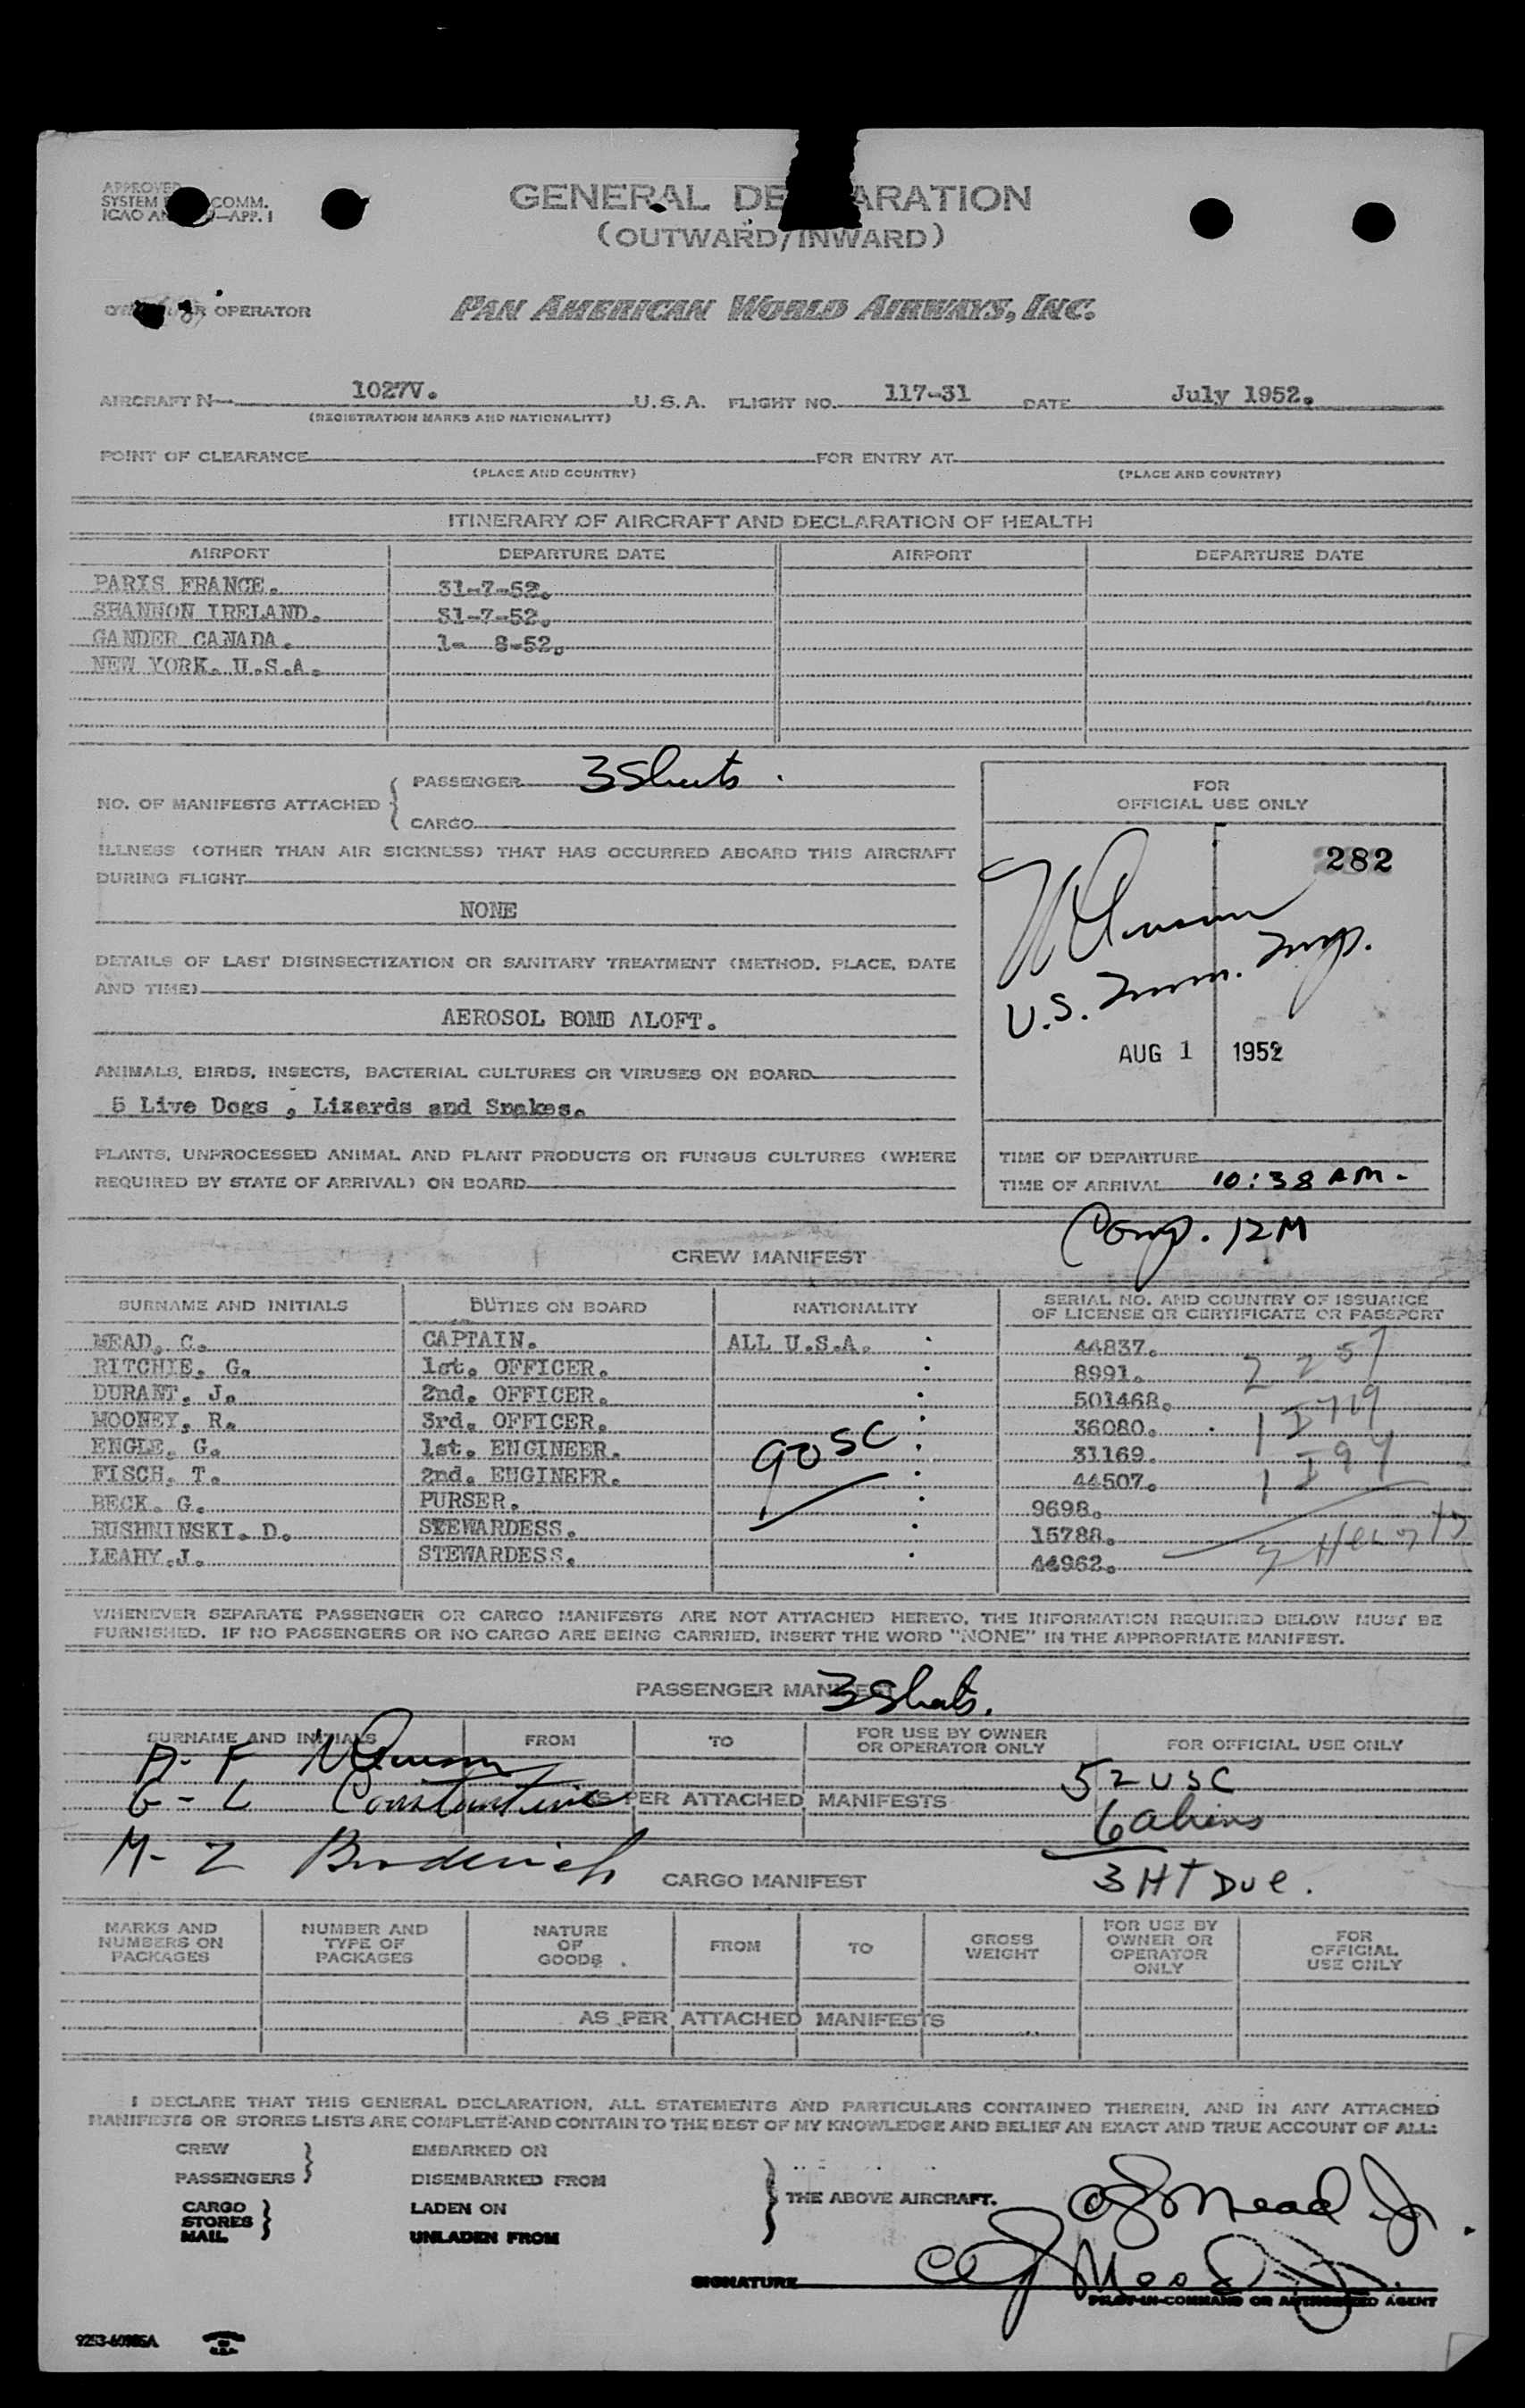 APPROVED
SYSTEM COMM.
ICAO —APP. 1
GENERAL DE ARATION
(OUTWARD/INWARD)
OPERATOR PAN AMERICAN WORLD AIRWAYS, INC.
AIRCRAFT N— 1027V. U.S.A. FLIGHT NO. 117-31 DATE July 1952.
(REGISTRATION MARKS AND NATIONALITY)
POINT OF CLEARANCE FOR ENTRY AT
(PLACE AND COUNTRY) (PLACE AND COUNTRY)
ITINERARY OF AIRCRAFT AND DECLARATION OF HEALTH
AIRPORT DEPARTURE DATE AIRPORT DEPARTURE DATE
PARIS FRANCE. 31-7-52.
SHANNON IRELAND. 31-7-52.
GANDER CANADA. 1- 8-52.
NEW YORK. U.S.A.
NO. OF MANIFESTS ATTACHED
PASSENGER 3 Sheets
CARGO
ILLNESS (OTHER THAN AIR SICKNESS) THAT HAS OCCURRED ABOARD THIS AIRCRAFT
DURING FLIGHT
NONE
DETAILS OF LAST DISINSECTIZATION OR SANITARY TREATMENT (METHOD, PLACE, DATE
AND TIME)
AEROSOL BOMB ALOFT.
ANIMALS, BIRDS, INSECTS, BACTERIAL CULTURES OR VIRUSES ON BOARD
5 Live Dogs , Lizards and Snakes.
PLANTS, UNPROCESSED ANIMAL AND PLANT PRODUCTS OR FUNGUS CULTURES (WHERE
REQUIRED BY STATE OF ARRIVAL) ON BOARD
FOR
OFFICIAL USE ONLY
282
U.S. Imm. Insp.
AUG 1 1952
TIME OF DEPARTURE
TIME OF ARRIVAL 10:38 AM-
Comp. 12M
CREW MANIFEST
SURNAME AND INITIALS DUTIES ON BOARD NATIONALITY SERIAL NO. AND COUNTRY OF ISSUANCE
OF LICENSE OR CERTIFICATE OR PASSPORT
MEAD, C. CAPTAIN. ALL U.S.A. 44837.
RITCHIE, G. 1st. OFFICER. 8991.
DURANT, J. 2nd. OFFICER. 501468.
MOONEY, R. 3rd. OFFICER. 36080.
ENGLE, G. 1st. ENGINEER. 31169.
FISCH, T. 2nd. ENGINEER. 44507.
BECK. G. PURSER. 9698.
BUSHNINSKI. D. STEWARDESS. 15788.
LEAHY.J. STEWARDESS. 44962.
WHENEVER SEPARATE PASSENGER OR CARGO MANIFESTS ARE NOT ATTACHED HERETO, THE INFORMATION REQUIRED BELOW MUST BE
FURNISHED. IF NO PASSENGERS OR NO CARGO ARE BEING CARRIED, INSERT THE WORD "NONE" IN THE APPROPRIATE MANIFEST.
PASSENGER MANIFEST 3 Sheets.
SURNAME AND INITIALS FROM TO FOR USE BY OWNER
OR OPERATOR ONLY FOR OFFICIAL USE ONLY
A- F
52 USC
G - L Constantine AS PER ATTACHED MANIFESTS
6 aliens
M- Z Broderick
3 HT Due.
CARGO MANIFEST
MARKS AND
NUMBERS ON
PACKAGES
NUMBER AND
TYPE OF
PACKAGES
NATURE
OF
GOODS
FROM
TO
GROSS
WEIGHT
FOR USE BY
OWNER OR
OPERATOR
ONLY
FOR
OFFICIAL
USE ONLY
AS PER ATTACHED MANIFESTS
I DECLARE THAT THIS GENERAL DECLARATION, ALL STATEMENTS AND PARTICULARS CONTAINED THEREIN, AND IN ANY ATTACHED
MANIFESTS OR STORES LISTS ARE COMPLETE AND CONTAIN TO THE BEST OF MY KNOWLEDGE AND BELIEF AN EXACT AND TRUE ACCOUNT OF ALL:
CREW EMBARKED ON
PASSENGERS DISEMBARKED FROM
CARGO LADEN ON
STORES
MAIL UNLADEN FROM
THE ABOVE AIRCRAFT.
CJ Mead Jr.
SIGNATURE CJ Mead Jr.
PILOT-IN-COMMAND OR AUTHORIZED AGENT